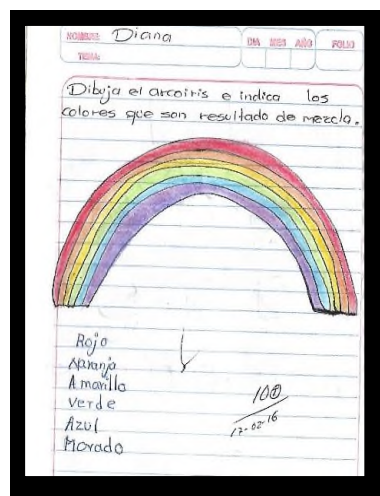 NOMBRE Diana
DIA MES AÑO FOLIO
TEMA:
Dibuja el arcoiris e indica los
colores que son resultado de mezcla.
Rojo
Naranja
Amarillo
Verde
Azul
Morado
100
17-02-16